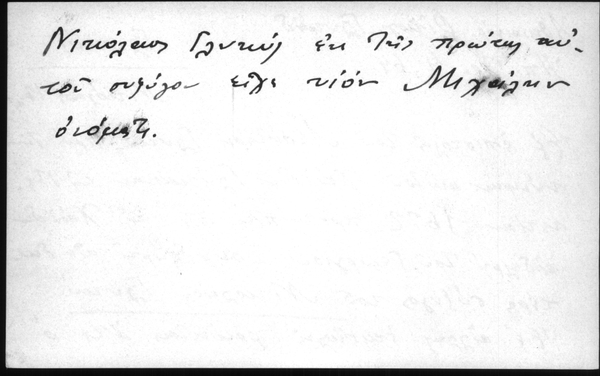 Νικόλαος Γλυκύς ἐκ τῆς πρώτης αὐ-
τοῦ συζύγου εἶχε υἱόν Μιχαήλον
ὀνόματι.